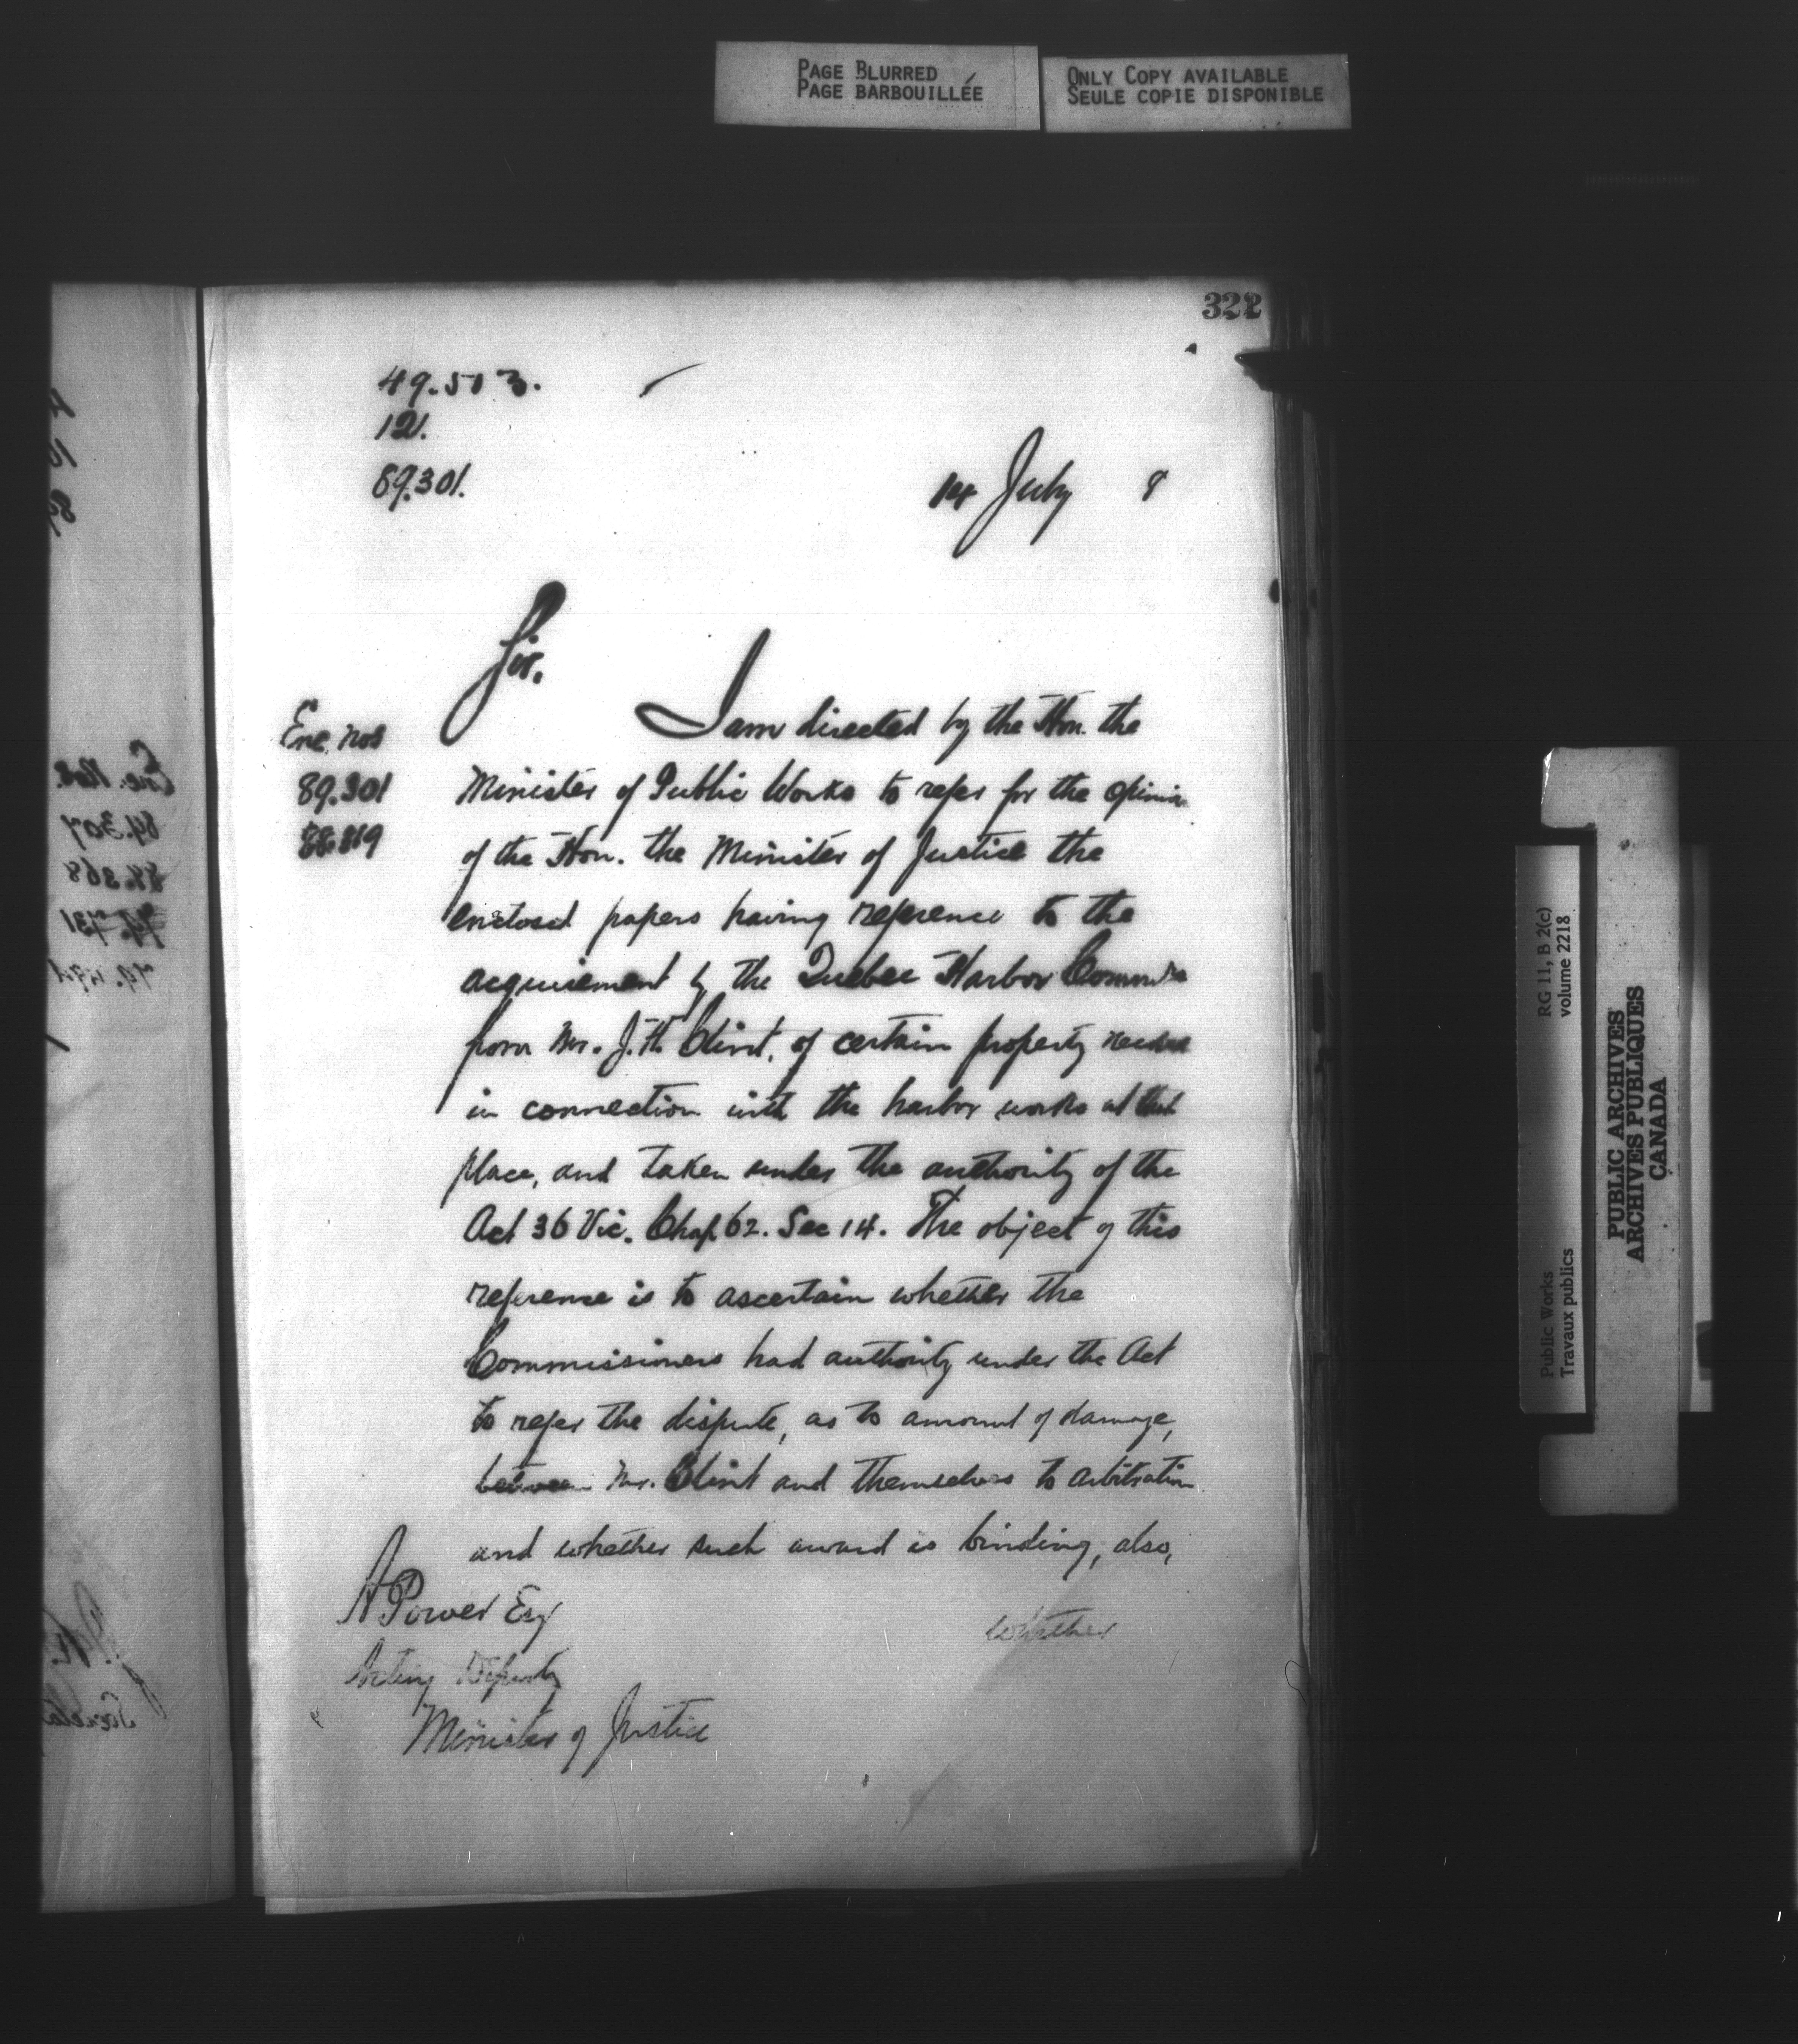 PAGE BLURRED
PAGE BARBOUILLÉE
ONLY COPY AVAILABLE
SEULE COPIE DISPONIBLE
322
49.513.
121.
89.301.
14 July 8
Sir.
I am directed by the Hon. the
Enc. Nos
89.301
88.819
Minister of Public Works to refer for the Opinion
of the Hon. the Minister of Justice the
enclosed papers having reference to the
acquirement by the Quebec Harbor Commrs
from Mr. J.H. Clint, of certain property needed
in connection with the harbor works at that
place, and taken under the authority of the
Act 36 Vic. Chap 62. Sec 14. The object of this
reference is to ascertain whether the
Commissioners had authority under the Act
to refer the dispute, as to amount of damage,
between Mr. Clint and themselves to arbitration
and whether such award is binding, also,
whether
A Power Esq
Acting Deputy
Minister of Justice
RG 11, B 2(c)
volume 2218
Public Works
Travaux publics
PUBLIC ARCHIVES
ARCHIVES PUBLIQUES
CANADA